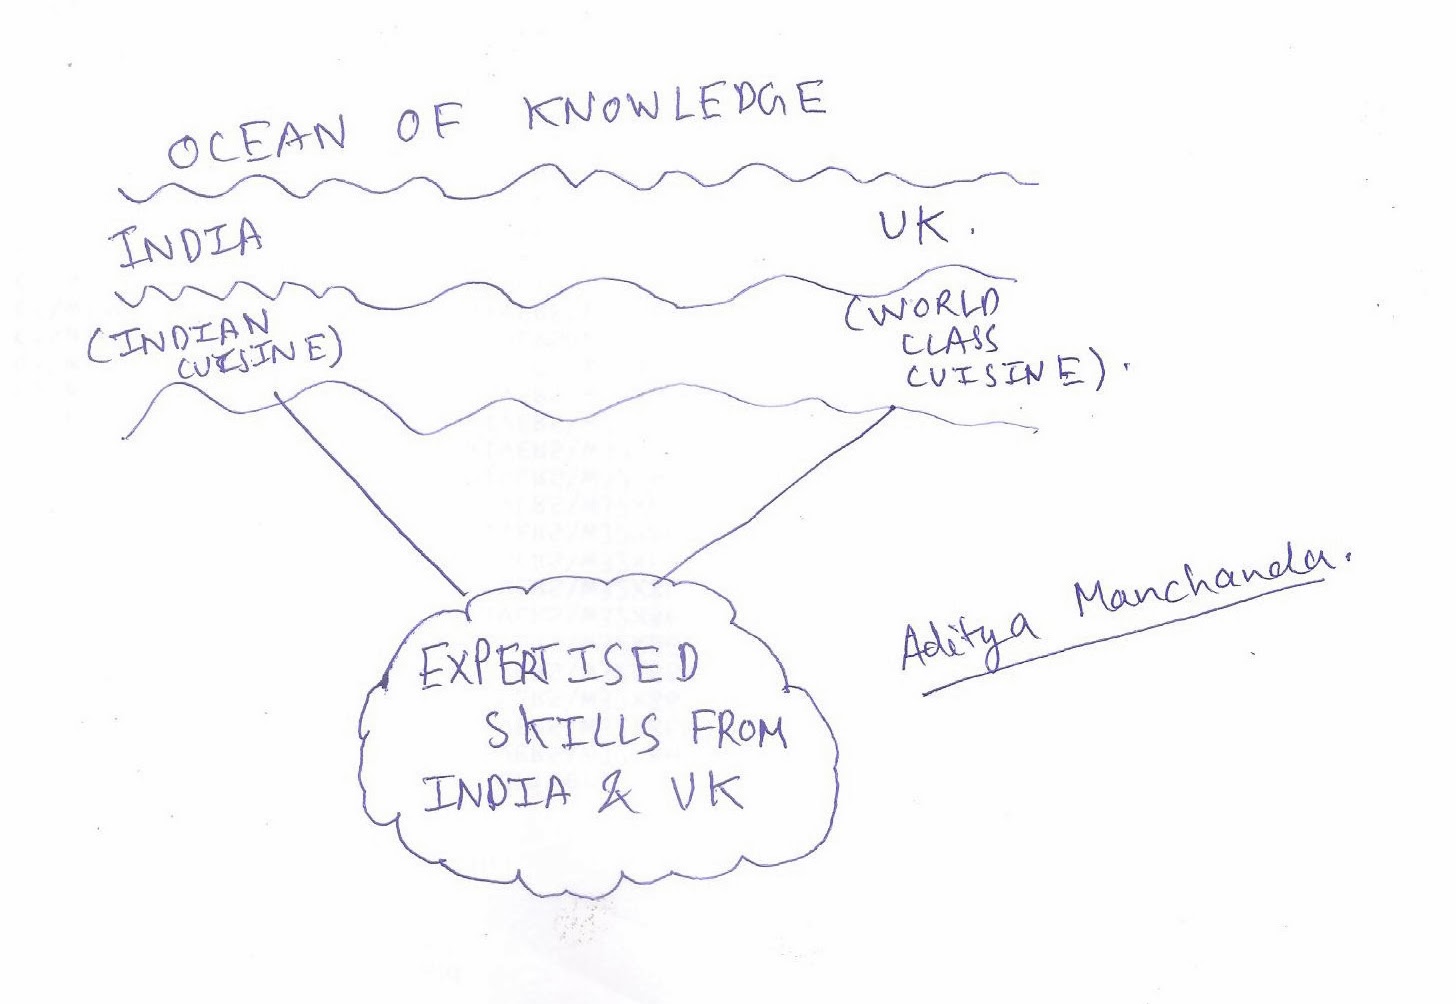 OCEAN OF KNOWLEDGE
INDIA UK.
(INDIAN
CUISINE)
(WORLD
CLASS
CUISINE).
EXPERTISED
SKILLS FROM
INDIA & UK
Aditya Manchanda.